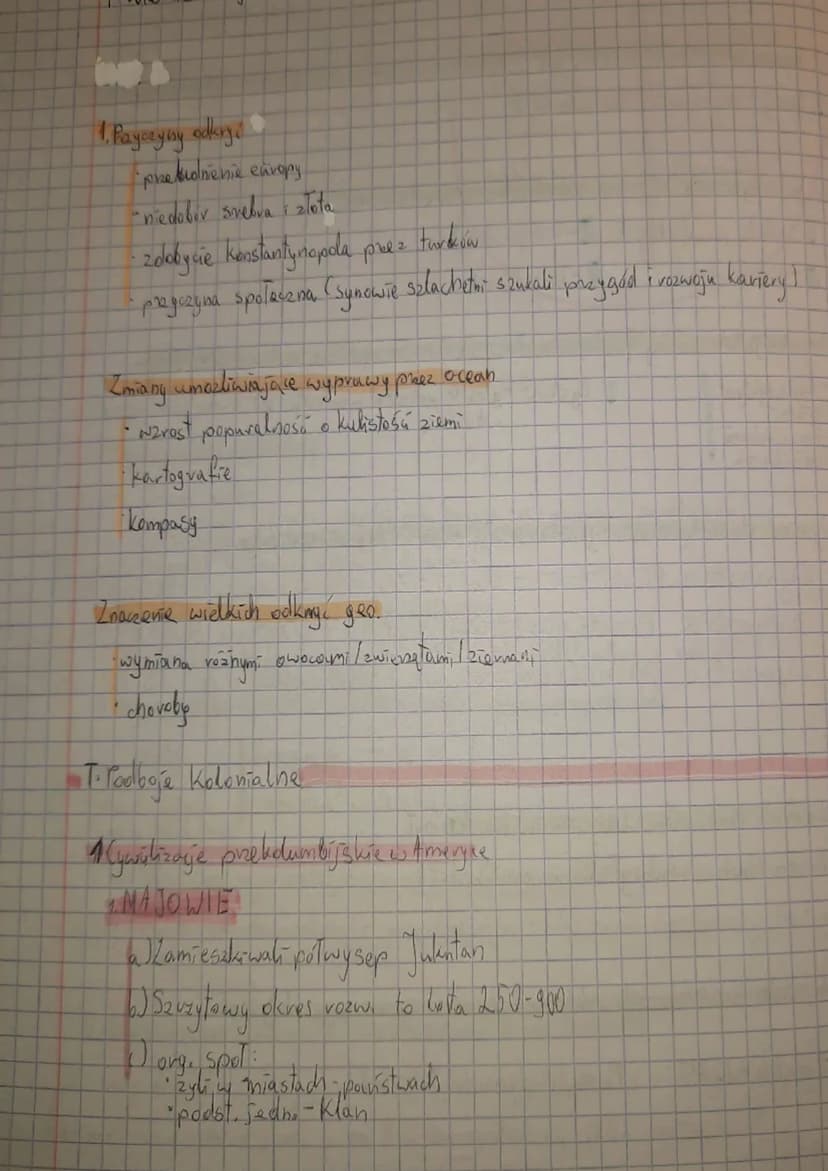 1. Przyczyny odkryć
· przeludnienie europy
- niedobór srebra i złota
· zdobycie Konstantynopola przez turków
· przyczyna społeczna (synowie szlachetni szukali przygód i rozwoju kariery)
Zmiany umożliwiające wyprawy przez ocean
· wzrost popuralność o kulistość ziemi
· kartografie
· kompasy
Znaczenie wielkich odkryć geo.
· wymiana różnymi owocami/zwierzętami/ziernami
· choroby
T. Podboje kolonialne
1 Cywilizacje prekolumbijskie w Ameryce
1. MAJOWIE
a) Zamieszkiwali półwysep Jukatan
b) Szczytowy okres rozw. to lata 250-900
c) org. społ:
· żyli w miastach-państwach
· podst. jedn. - Klan